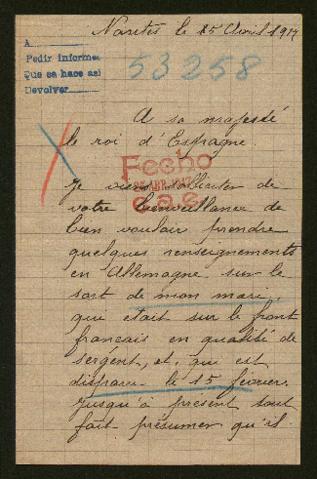 Nantes le 25 Avril 1917
A
Pedir informe
Que se hace así
Devolver
53258
A sa majesté
le roi d'Espagne.
Fecho
ABR. 1917
Je viens solliciter de
votre bienveillance de
bien vouloir prendre
quelques renseignements
en Allemagne sur le
sort de mon mari,
que était sur le front
français en qualité de
sergent, et, qui est
disparu le 15 février.
Jusqu'à présent tout
fait présumer qu'il